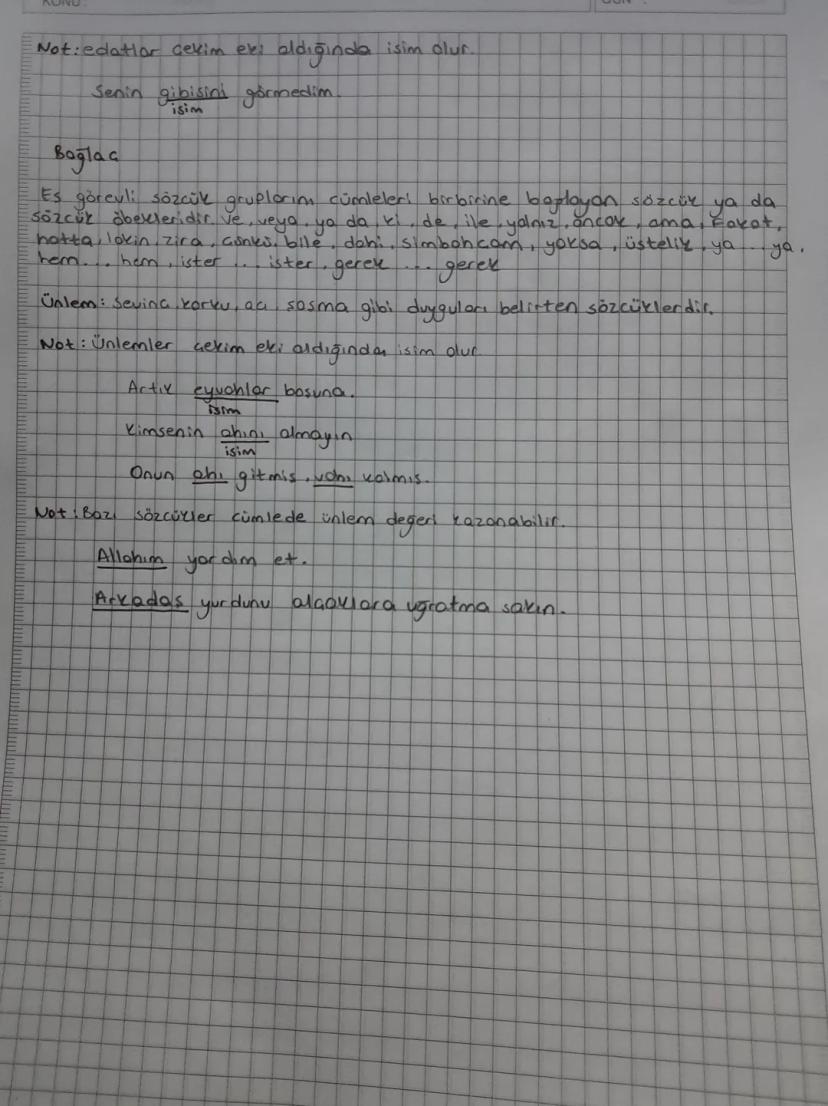 KONU: GÜN:
Not: edatlar çekim eki aldığında isim olur.
Senin gibisini görmedim.
isim
Bağlaç
Eş görevli sözcük gruplarını cümleleri birbirine bağlayan sözcük ya da
sözcük öbekleridir. Ve, veya, ya da, ki, de, ile, yalnız, ancak, ama, fakat,
hatta, lakin, zira, çünkü, bile, dahi, , yoksa, üstelik, ya ... ya,
hem ... hem, ister ... ister, gerek ... gerek
Ünlem: Sevinç, korku, acı, şaşma gibi duyguları belirten sözcüklerdir.
Not: Ünlemler çekim eki aldığında isim olur.
Artık eyvahlar boşuna.
isim
Kimsenin ahını almayın
isim
Onun ahı gitmiş, vahı kalmış.
Not: Bazı sözcükler cümlede ünlem değeri kazanabilir.
Allahım yardım et.
Arkadaş yurdunu alçaklara uğratma sakın.